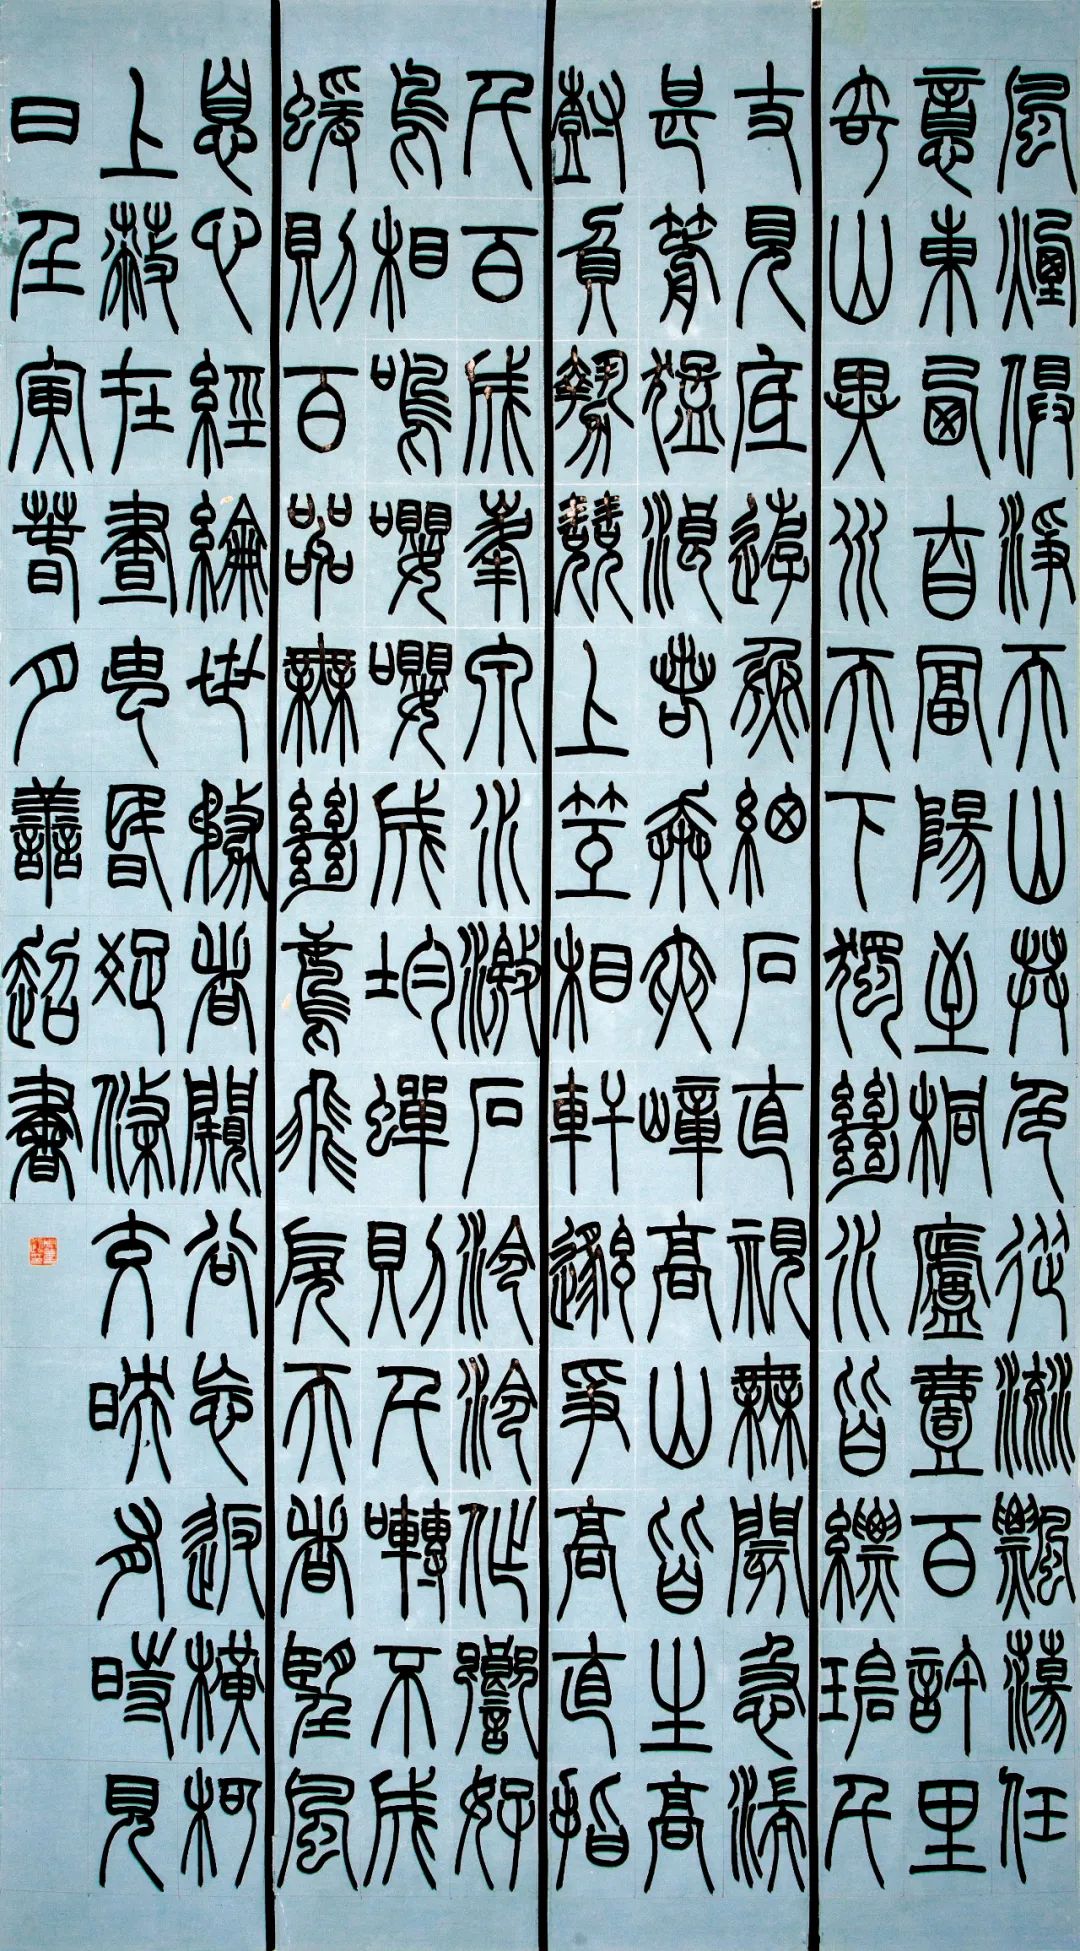 風煙俱淨天山共色從流飄蕩任
意東西自富陽至桐廬壹百許里
奇山異水天下獨絕水皆縹碧千
丈見底遊魚細石直視無礙急湍
甚箭猛浪若奔夾嶂高山皆生高
樹負勢競上互相軒邈爭高直指
千百成峯泉水激石泠泠作響好
鳥相鳴嚶嚶成均蟬則千囀不成
蝯則百嘂無絕鳶飛戾天者望風
息心經綸世務者闚谷忘返橫柯
上蔽在晝昏疏條交映有時見
日壬寅春月善超書